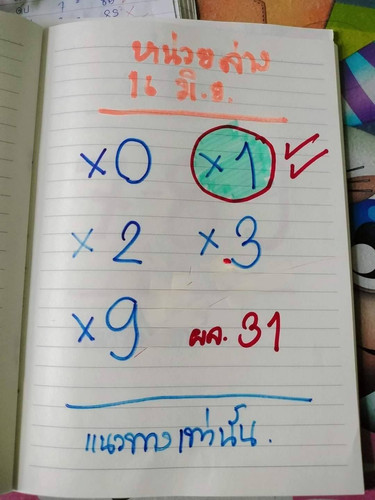 หน่วยล่าง
16 มิ.ย.
×0 ×1
×2 ×.3
×9 ผล. 31
แนวทางเท่านั้น.